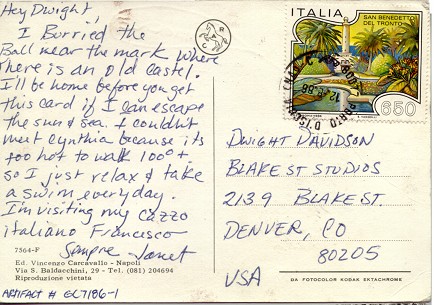 Hey Dwight
I Burried the
Ball near the mark where
there is an old Castel.
I'll be home before you get
this card if I can escape
the sun & sea. I couldn't
meet Cynthia because its
too hot to walk 100°+
so I just relax & take
a swim everyday.
I'm visiting my Cazzo
italiano Francesco
Sempre - Janet
7564-F
Ed. Vincenzo Carcavallo - Napoli
Via S. Baldacchini, 29 - Tel. (081) 204694
Riproduzione vietata
ARTIFACT # GL7186-1
ITALIA
SAN BENEDETTO
DEL TRONTO
650
DWIGHT DAVIDSON
BLAKE ST STUDIOS
2139 BLAKE ST.
DENVER, CO
80205
USA
DA FOTOCOLOR KODAK EKTACHROME